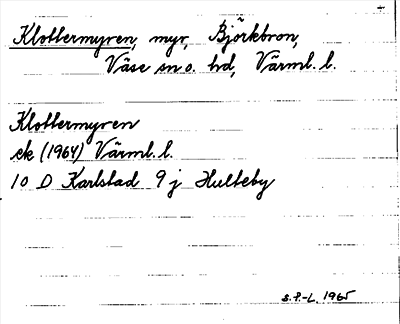 Klottermyren, myr, Björkbron,
Väse sn o. hd, Värml. l.
Klottermyren
ek (1964) Värml. l.
10 D Karlstad 9 j Hulteby
S.P.-L. 1965